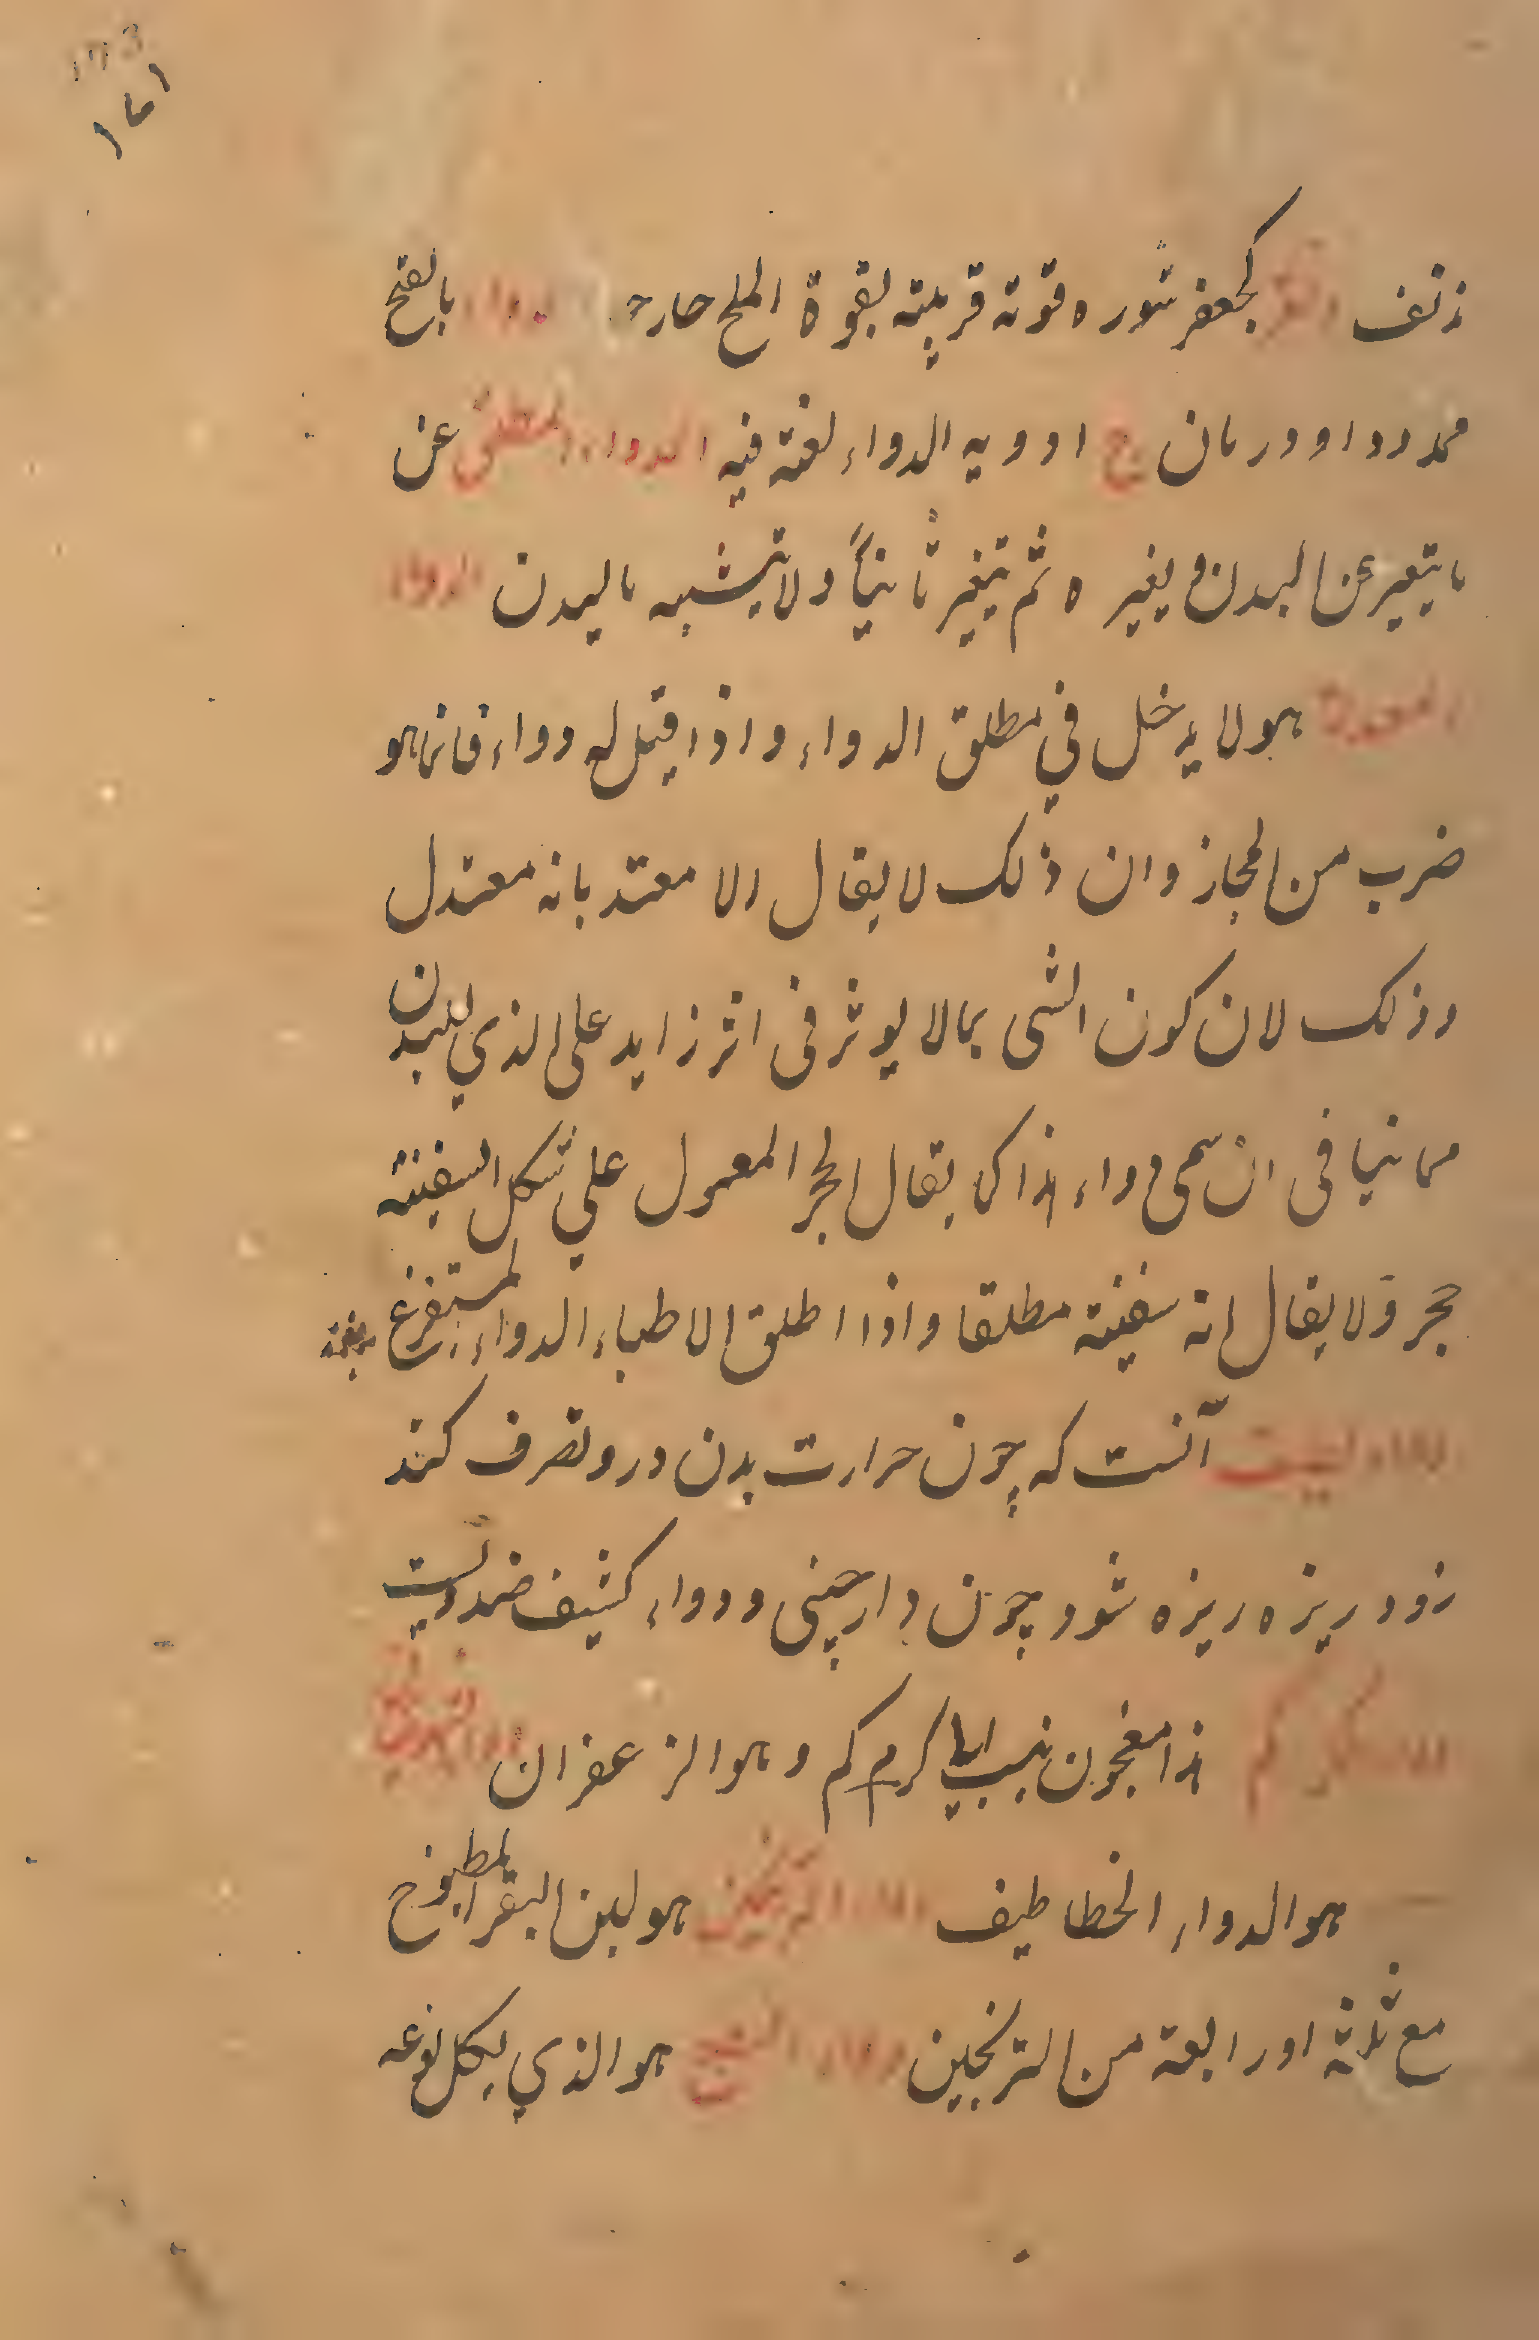 ۱۷۱
زنف کجعفر شوره قوته قریبته بقوة الملح حار دواء بالفتح
ممدود داو و درمان ج ادویه الدواء لغته فیه الدواء المطلق عن
ما یتغیر عن البدن و یغیره ثم یتغیر ثانیاً ولا یتشبه بالبدن الدواء
المعتدل هو لا یدخل فی مطلق الدواء واذا قیل له دواء فانما هو
ضرب من المجاز وان ذلک لا یقال الا معتد بانه معتدل
وذلک لان کون الشی بما لا یوثر فی اثر زاید علی الذی للبدن
مما ینافی ان سمی دواء هذا کما یقال لحجر المعمول علی شکل السفینته
حجر ولا یقال انه سفینته مطلقا واذا اطلق الاطباء الدواء المستفرغ
دواء لطیف آنست که چون حرارت بدن درو تصرف کند
زود ریزه ریزه شود چون دارچینی و دواء کثیف ضد ویست
الدواء الکرکم هذا معجون ینسب الی کرکم و هو الزعفران
هو الدواء الخطاطیف دواء الترنجبین هو لبن البقر المطبوخ
مع ثلاثه او رابعة من الترنجبین دواء هو الذی بکل نوعه